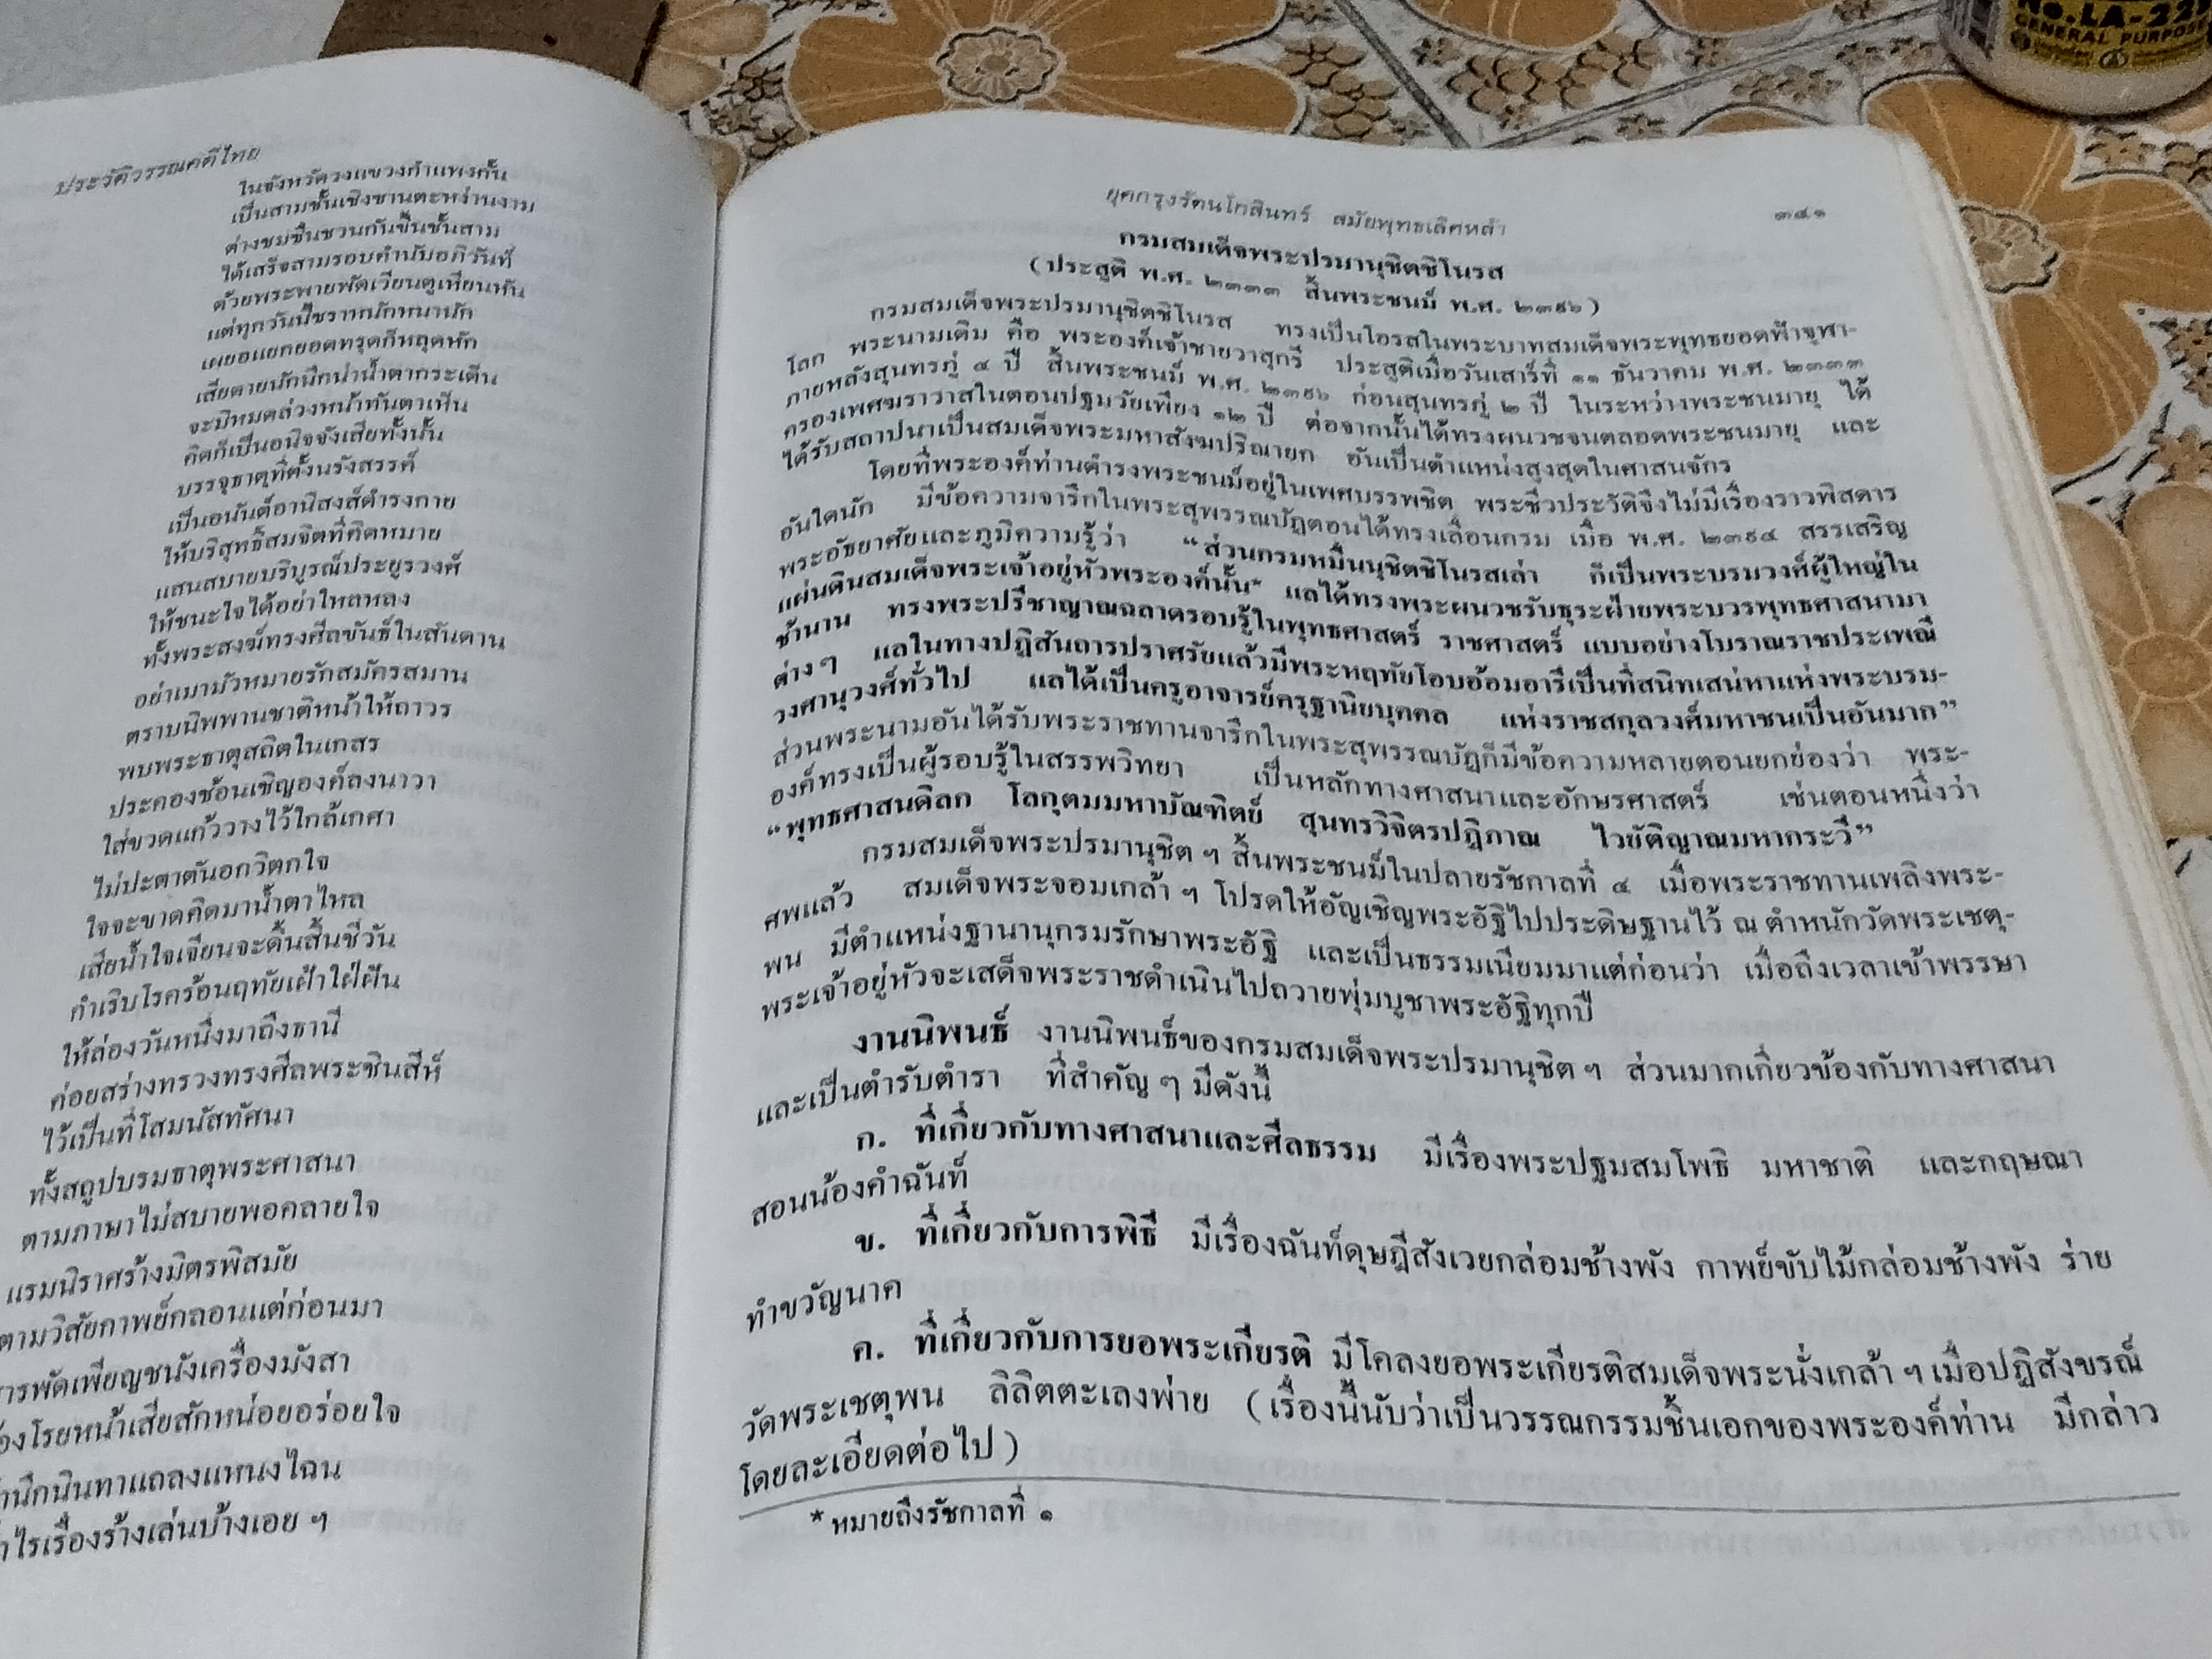 ประวัติวรรณคดีไทย
ในจังหวัดวงแขวงกำแพงกั้น
เป็นสามชั้นเชิงชานตะหง่านงาม
ต่างชมชื่นชวนกันขึ้นชั้นสาม
ได้เสร็จสามรอบคำนับอภิวันท์
ด้วยพระพายพัดเวียนดูเหียนหัน
แต่ทุกวันนี้ชราหนักหนานัก
เผยอแยกยอดทรุดก็หลุดหัก
เสียดายนักนึกน่าน้ำตากระเด็น
จะมิหมดล่วงหน้าทันตาเห็น
คิดก็เป็นอนิจจังเสียทั้งนั้น
บรรจุธาตุที่ตั้งนรังสรรค์
เป็นอนันต์อานิสงส์ดำรงกาย
ให้บริสุทธิ์สมจิตที่คิดหมาย
แสนสบายบริบูรณ์ประยูรวงศ์
ให้ชนะใจได้อย่าใหลหลง
ทั้งพระสงฆ์ทรงศีลขันธ์ในสันดาน
อย่าเมามัวหมายรักสมัครสมาน
ตราบนิพพานชาติหน้าให้ถาวร
พบพระธาตุสถิตในเกสร
ประคองช้อนเชิญองค์ลงนาวา
ใส่ขวดแก้ววางไว้ใกล้เกศา
ไม่ปะตาตันอกวิตกใจ
ใจจะขาดคิดมาน้ำตาไหล
เสียน้ำใจเจียนจะดิ้นสิ้นชีวัน
กำเริบโรคร้อนฤทัยเฝ้าใฝ่ฝัน
ให้ล่องวันหนึ่งมาถึงธานี
ค่อยสร่างทรวงทรงศีลพระชินสีห์
ไว้เป็นที่โสมนัสทัศนา
ทั้งสถูปบรมธาตุพระศาสนา
ตามภาษาไม่สบายพอคลายใจ
แรมนิราศร้างมิตรพิสมัย
ตามวิสัยกาพย์กลอนแต่ก่อนมา
ารพัดเพียญชนังเครื่องมังสา
องโรยหน้าเสียสักหน่อยอร่อยใจ
นึกนินทาแถลงแหนงไฉน
ำไรเรื่องร้างเล่นบ้างเอย ฯ
ยุคกรุงรัตนโกสินทร์ สมัยพุทธเลิศหล้า
๓๔๑
กรมสมเด็จพระปรมานุชิตชิโนรส
(ประสูติ พ.ศ. ๒๓๓๓ สิ้นพระชนม์ พ.ศ. ๒๓๙๖)
กรมสมเด็จพระปรมานุชิตชิโนรส ทรงเป็นโอรสในพระบาทสมเด็จพระพุทธยอดฟ้าจุฬา-
โลก พระนามเดิม คือ พระองค์เจ้าชายวาสุกรี ประสูติเมื่อวันเสาร์ที่ ๑๑ ธันวาคม พ.ศ. ๒๓๓๓
ภายหลังสุนทรภู่ ๔ ปี สิ้นพระชนม์ พ.ศ. ๒๓๙๖ ก่อนสุนทรภู่ ๒ ปี ในระหว่างพระชนมายุ ได้
ครองเพศฆราวาสในตอนปฐมวัยเพียง ๑๒ ปี ต่อจากนั้นได้ทรงผนวชจนตลอดพระชนมายุ และ
ได้รับสถาปนาเป็นสมเด็จพระมหาสังฆปริณายก อันเป็นตำแหน่งสูงสุดในศาสนจักร
โดยที่พระองค์ท่านดำรงพระชนม์อยู่ในเพศบรรพชิต พระชีวประวัติจึงไม่มีเรื่องราวพิสดาร
อันใดนัก มีข้อความจารึกในพระสุพรรณบัฏตอนได้ทรงเลื่อนกรม เมื่อ พ.ศ. ๒๓๙๔ สรรเสริญ
พระอัธยาศัยและภูมิความรู้ว่า “ส่วนกรมหมื่นนุชิตชิโนรสเล่า ก็เป็นพระบรมวงศ์ผู้ใหญ่ใน
แผ่นดินสมเด็จพระเจ้าอยู่หัวพระองค์นั้น* แลได้ทรงพระผนวชรับธุระฝ่ายพระบวรพุทธศาสนามา
ช้านาน ทรงพระปรีชาญาณฉลาดรอบรู้ในพุทธศาสตร์ ราชศาสตร์ แบบอย่างโบราณราชประเพณี
ต่างๆ แลในทางปฏิสันถารปราศรัยแล้วมีพระหฤทัยโอบอ้อมอารีเป็นที่สนิทเสน่หาแห่งพระบรม-
วงศานุวงศ์ทั่วไป แลได้เป็นครูอาจารย์ครุฐานิยบุคคล แห่งราชสกุลวงศ์มหาชนเป็นอันมาก”
ส่วนพระนามอันได้รับพระราชทานจารึกในพระสุพรรณบัฏก็มีข้อความหลายตอนยกย่องว่า พระ-
องค์ทรงเป็นผู้รอบรู้ในสรรพวิทยา เป็นหลักทางศาสนาและอักษรศาสตร์ เช่นตอนหนึ่งว่า
“พุทธศาสนดิลก โลกุตมมหาบัณฑิตย์ สุนทรวิจิตรปฏิภาณ ไวยัติญาณมหากระวี”
กรมสมเด็จพระปรมานุชิต ฯ สิ้นพระชนม์ในปลายรัชกาลที่ ๔ เมื่อพระราชทานเพลิงพระ-
ศพแล้ว สมเด็จพระจอมเกล้า ฯ โปรดให้อัญเชิญพระอัฐิไปประดิษฐานไว้ ณ ตำหนักวัดพระเชตุ-
พน มีตำแหน่งฐานานุกรมรักษาพระอัฐิ และเป็นธรรมเนียมมาแต่ก่อนว่า เมื่อถึงเวลาเข้าพรรษา
พระเจ้าอยู่หัวจะเสด็จพระราชดำเนินไปถวายพุ่มบูชาพระอัฐิทุกปี
งานนิพนธ์ งานนิพนธ์ของกรมสมเด็จพระปรมานุชิต ฯ ส่วนมากเกี่ยวข้องกับทางศาสนา
และเป็นตำรับตำรา ที่สำคัญ ๆ มีดังนี้
ก. ที่เกี่ยวกับทางศาสนาและศีลธรรม มีเรื่องพระปฐมสมโพธิ มหาชาติ และกฤษณา
สอนน้องคำฉันท์
ข. ที่เกี่ยวกับการพิธี มีเรื่องฉันท์ดุษฎีสังเวยกล่อมช้างพัง กาพย์ขับไม้กล่อมช้างพัง ร่าย
ทำขวัญนาค
ค. ที่เกี่ยวกับการยอพระเกียรติ มีโคลงยอพระเกียรติสมเด็จพระนั่งเกล้า ฯ เมื่อปฏิสังขรณ์
วัดพระเชตุพน ลิลิตตะเลงพ่าย (เรื่องนี้นับว่าเป็นวรรณกรรมชิ้นเอกของพระองค์ท่าน มีกล่าว
โดยละเอียดต่อไป)
* หมายถึงรัชกาลที่ ๑
No.LA-22
GENERAL PURPOSE